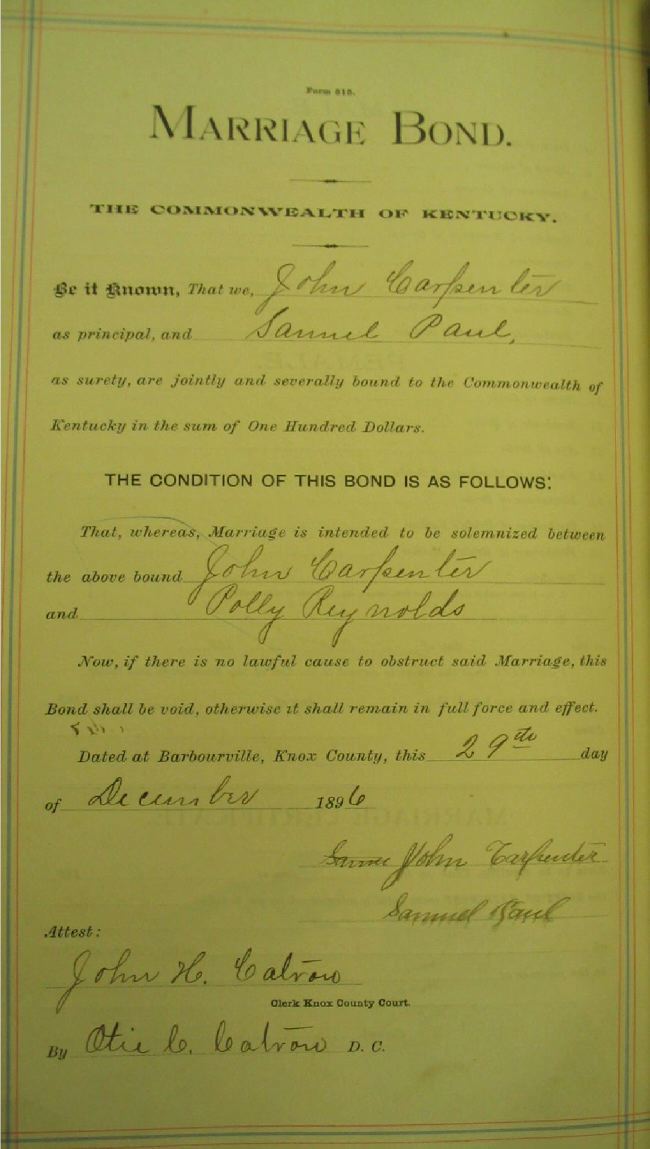 Form 615.
MARRIAGE BOND.
THE COMMONWEALTH OF KENTUCKY.
Be it Known, That we, John Carpenter
as principal, and Samuel Paul,
as surety, are jointly and severally bound to the Commonwealth of
Kentucky in the sum of One Hundred Dollars.
THE CONDITION OF THIS BOND IS AS FOLLOWS:
That, whereas, Marriage is intended to be solemnized between
the above bound John Carpenter
and Polly Reynolds
Now, if there is no lawful cause to obstruct said Marriage, this
Bond shall be void, otherwise it shall remain in full force and effect.
Dated at Barbourville, Knox County, this 29th day
of December 1896
John Carpenter
Samuel Paul
Attest:
John H. Catron
Clerk Knox County Court.
By Otie C. Catron D. C.